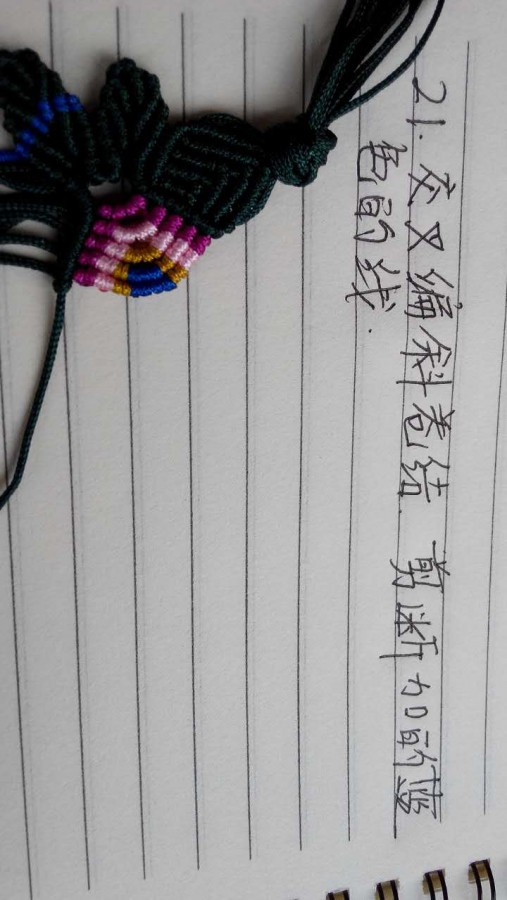 21. 交叉编斜卷结. 剪断加的蓝
色的线.